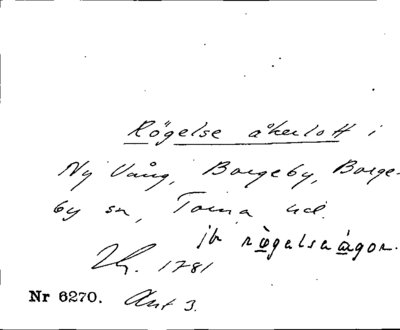 Rögelse åkerlott i
Ny Vång, Borgeby, Borge-
by sn, Torna hd.
jfr rögelsaågor.
1781
Nr 6270. Akt 3.